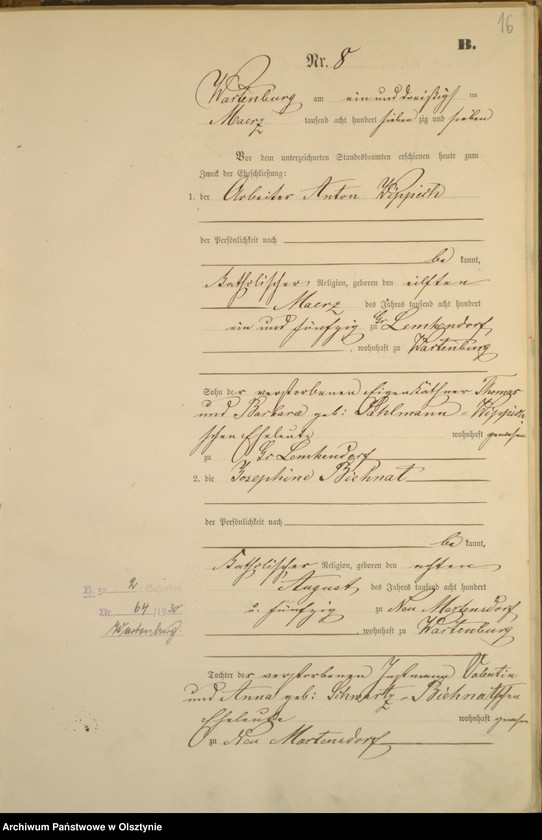 16
B.
Nr. 8
Wartenburg am ein und dreißigsten
Maerz tausend acht hundert sieben zig und sieben
Vor dem unterzeichneten Standesbeamten erschienen heute zum
Zweck der Eheschließung:
1. der Arbeiter Anton Wippich
der Persönlichkeit nach
be kannt,
katholischer Religion, geboren den eilften
Maerz des Jahres tausend acht hundert
ein und fünfzig zu Gr Lemkendorf
, wohnhaft zu Wartenburg
Sohn der verstorbenen Eigenkäthner Thomas
und Barbara geb: Pahlmann - Wippich
schen Eheleute wohnhaft gewesen
zu Gr Lemkendorf
2. die Josephine Biehnat
der Persönlichkeit nach
be kannt,
katholischer Religion, geboren den achten
August des Jahres tausend acht hundert
u. fünfzig zu Neu Mertensdorf
, wohnhaft zu Wartenburg
Tochter der verstorbenen Instmann Valentin
und Anna geb: Schwartz - Biehnatschen
Eheleute wohnhaft gewesen
zu Neu Martensdorf
H. zu 2 Gestorben
Nr. 64/1930
Wartenburg.
Archiwum Państwowe w Olsztynie